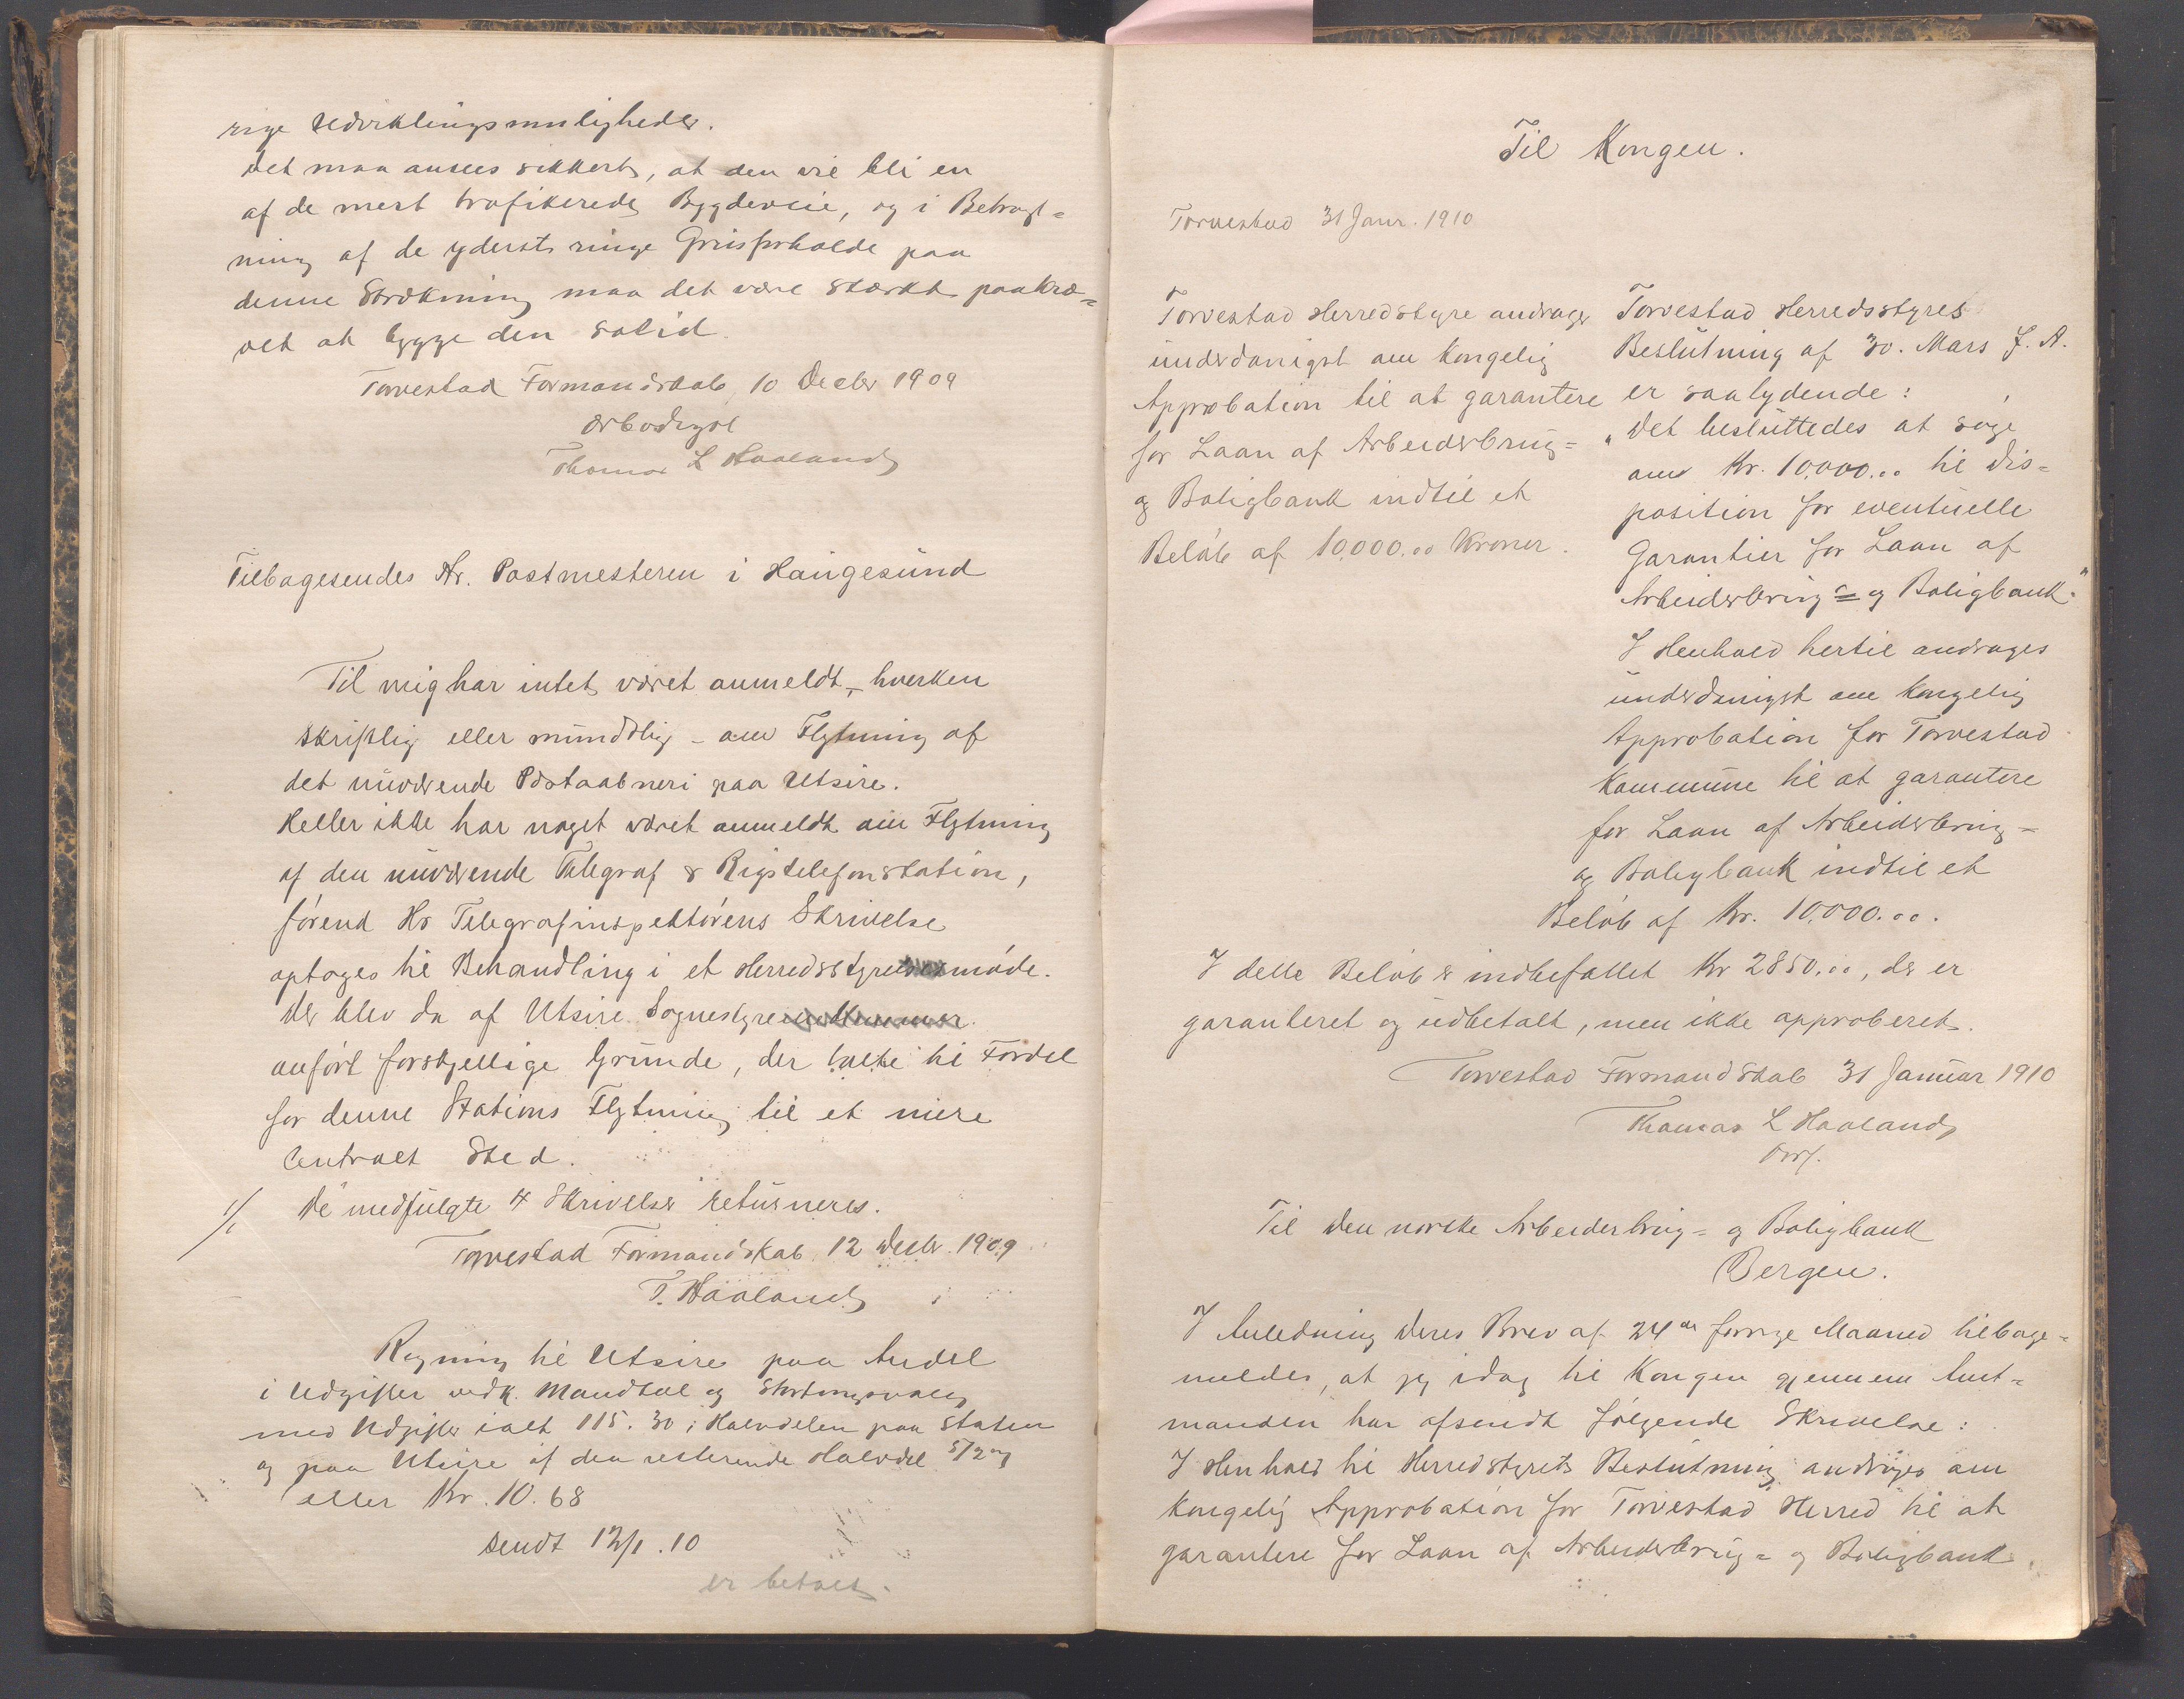 rige Udviklingsmuligheder.
Det maa ansees sikkert, at den vil bli en
af de mest trafikerede Bygdeveie, og i Betragt=
ning af de yderst ringe Grusforholde paa
denne Strækning maa det være stærkt paakræ=
vet at bygge den solid.
Torvestad Formandskab, 10 Decbr 1909
Ærbødigst
Thomas L Haaland
Tilbagesendes Hr. Postmesteren i Haugesund
Til mig har intet været anmeldt, – hverken
skriftlig eller mundtlig – om Flytning af
det nuværende Postaabneri paa Utsire.
Heller ikke har noget været anmeldt om Flytning
af den nuværende Telegraf & Rigstelefonstation,
førend Hr Telegrafinspektørens Skrivelse
optoges til Behandling i et Herredsstyremøde.
Der blev da af Utsire Sognestyre
anført forskjellige Grunde, der talte til Fordel
for denne Stations Flytning til et mere
Centralt Sted.
1/1 De medfulgte 4 Skrivelser returneres.
Torvestad Formandskab 12 Decbr. 1909
T. Haaland
Regning til Utsire paa Andel
i Udgifter vedk. Mandtal og Stortingsvalg
med Udgifter ialt 115.30; Halvdelen paa Staten
og paa Utsire af den resterende Halvdel
eller Kr. 10.68
sendt 12/1.10
er betalt.
Til Kongen.
Torvestad 31 Janr. 1910
Torvestad Herredstyre andrager
underdanigst om Kongelig
Approbation til at garantere
for Laan af Arbeiderbrug=
og Boligbank indtil et
Beløb af 10.000.00 Kroner.
Torvestad Herredsstyres
Beslutning af 30. Mars f. A.
er saalydende:
"Det besluttedes at søge
om Kr. 10.000.00 til Dis=
position for eventuelle
Garantier for Laan af
Arbeiderbrug= og Boligbank."
I Henhold hertil andrages
underdanigst om Kongelig
Approbation for Torvestad
Kommune til at garantere
for Laan af Arbeiderbrug=
og Boligbank indtil et
Beløb af Kr. 10.000.00.
I dette Beløb er indbefattet Kr 2850.00, der er
garanteret og udbetalt, men ikke approberet.
Torvestad Formandskab 31 Januar 1910
Thomas L Haaland
Orf.
Til Den norske Arbeiderbrug= og Boligbank
Bergen.
I Anledning Deres Brev af 24de forrige Maaned tilbage=
meldes, at jeg idag til Kongen gjennem Amt=
manden har afsendt følgende Skrivelse:
I Henhold til Herredstyrets Beslutning andrages om
Kongelig Approbation for Torvestad Herred til at
garantere for Laan af Arbeiderbrug= og Boligbank